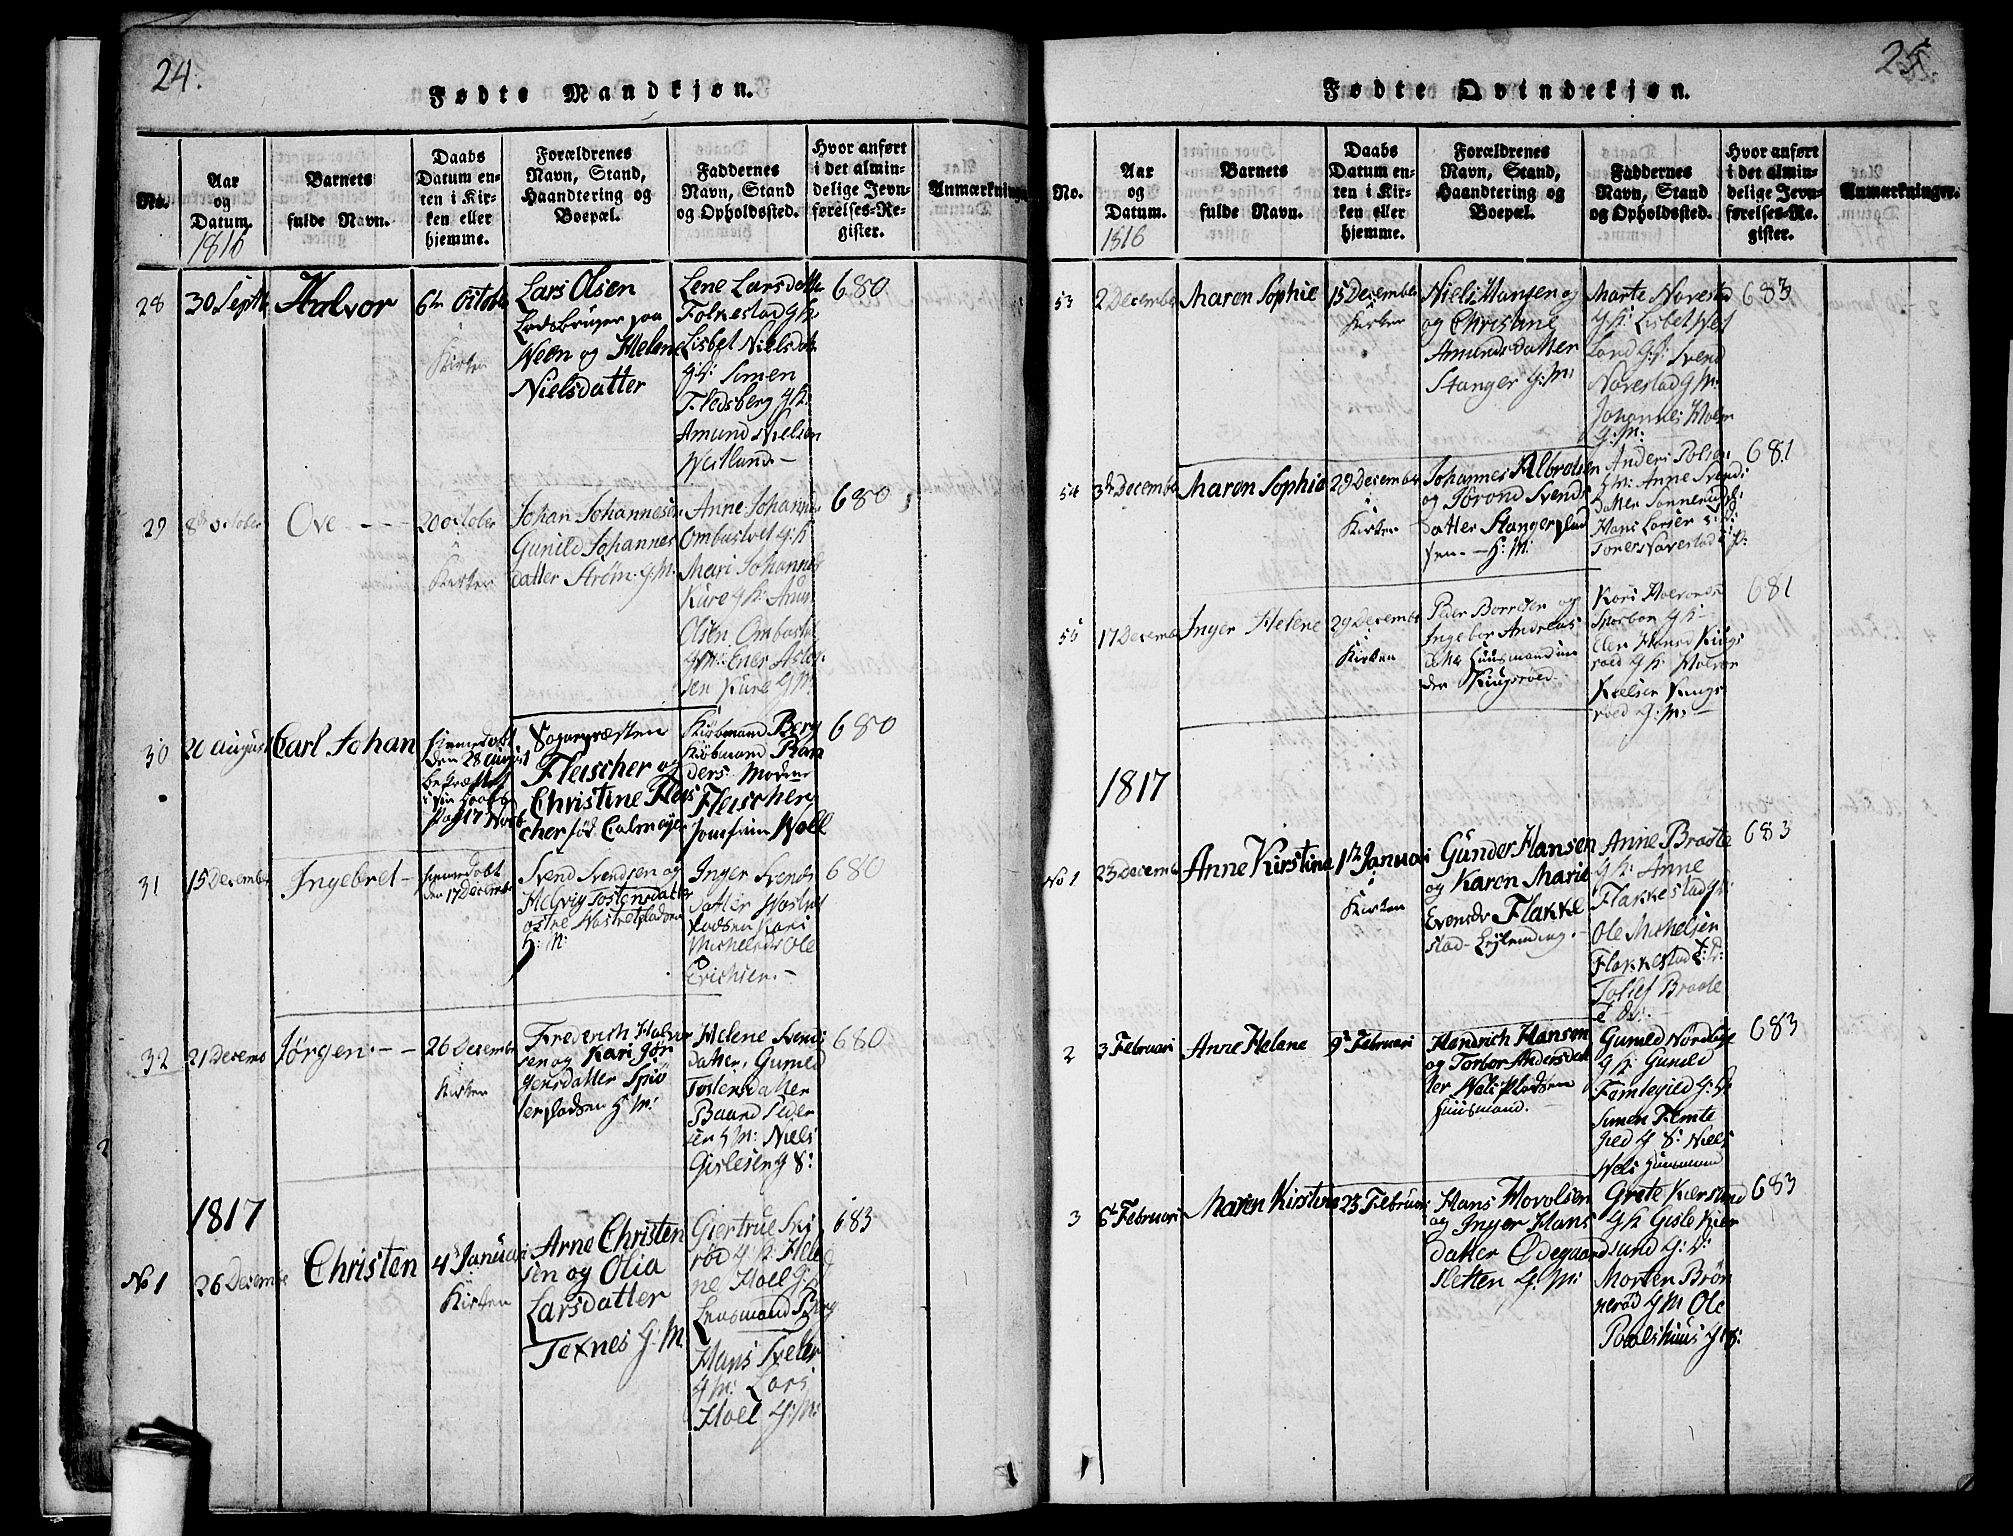 24.
Fødte Mandkjøn.
No.
Aar
og
Datum.
1816
Barnets
fulde Navn.
Daabs
Datum en-
ten i Kir-
ken eller
hjemme.
Forældrenes
Navn, Stand,
Haandtering og
Boepæl.
Faddernes
Navn, Stand
og Opholdssted.
Hvor anført
i det almin-
delige Jevn-
førelses-Re-
gister.
Anmærkninger
28
30 Septbr
Halvor
6te October
Kirken
Lars Olsen
paa
Ween og Helene
Nielsdatter
Lene Larsdatter
Folkestad G.K.
Lisbet Nielsdatr
G.K. Simen
Flodsberg G.K.
Amund Nielsen
Westland.-
680
29
8de October
Ove - - -
20 October
Kirken
Johan Johannesen
Gunild Johannes
datter Strøm. G.M.
Anne Johannsdr
Ombustvet G.K.
Mari Johannesd
Kure G.K. Amun
Olsen Ombustv
G.M. Ener Aslag
sen Kure G.M.
680
30
20 August
Carl Johan
hjemmedøbt
den 28 August
Sognepræsten
Fleischer og
Christine Fleis
cher fød Calmeyer
Kiøbmand Berg
Kiøbmand Ran
ders Madme
Fleischer,
Jomfrue Woll
680
31
15 December
Ingebret -
hjemmedøbt
den 17 December
Svend Svendsen og
Helvig Tostensdatter
østre Nastvetpladsen
H: M:
Inger Svends
datter Nastvet
pladsen Kari
Michelsdr Ole
Erichsen.-
680
32
21 Decemb
Jørgen. - -
26 December
Kirken
Frederich Halvor
sen og Kari Jør
gensdatter Spiø
terpladsen H: M:
Helene Svends
datter, Gunild
Tostensdatter
Baard Peder
sen H M: Niels
Gislesen G S:
680
1817
No 1
26 Decembe
Christen
4de Januari
Kirken
Arne Christen
sen og Olia
Larsdatter
Texnes G. M
Giertrue Ski
rød G. K. Hele
ne Hoel G.
Lensmand Berg
Hans Tveter
G M: Lars
Hoel G: M:
683
25.
Fødte Qvindekjøn.
No.
Aar
og
Datum.
1816
Barnets
fulde Navn.
Daabs
Datum en-
ten i Kir-
ken eller
hjemme.
Forældrenes
Navn, Stand,
Haandtering og
Boepæl.
Faddernes
Navn, Stand
og Opholdssted.
Hvor anført
i det almin-
delige Jevn-
førelses-Re-
gister.
Anmærkninger.
53
2 December
Maren Sophie
15 December
Kirken
Niels Hansen og
og Christine
Amundsdatter
Stanger G: M:
Marte Navestad
G K: Lisbet Wet
Land G. K: Svend
Navestad G M.
Johannes Holm
G: M:
683
54
3de December
Maren Sophie
29 December
i
Kirken
Johannes Albretsen
og Jørond Svends
datter Stanger plad
sen. - H: M:
Anders Polsen
H M: Anne Svends
datter Sannerud
Hans Larsen
Navestad
681
55
17 Decembe
Inger Helene
29 December
i
Kirken
Peder Borresen og
Ingebor Andreas
datter Huusmand un
der Kingsroed.
Kari Halvorsdr
G K -
Elen Hansd Kings
roed G. K: Halvor
Nielsen Kings
roed G. M: -
681
1817
No 1
23 Decemb
Anne Kirstina
1te Januari
i
Kirken
Günder Hansen
og Karen Marie
Evensdr Flakke
stad -
Anne Braate
G K: Anne
Flakkestad G K:
Ole Michelsen
Flakkestad
Tollef Braate
683
2
3 Februari
Anne Helene
9de Februari
Hendrich Hansen
og Torbor Andersdat
ter Næs Pladsen
Huusmand. -
Gunild Nordbye
G K: Gunild
Femtegield G: K
Simen Femte
gied G S: Niels
Huusmand
683
3
6te Februari
Maren Kirstine
23 Februari
Hans Hovolsen
og Inger Hans
datter Ødegaard
sletten G. M:
Grete Kiersund
G K Gisle Kier
sund G: S:
Morten Brøn
nerød G M Ole
Povelshuus G S:
683